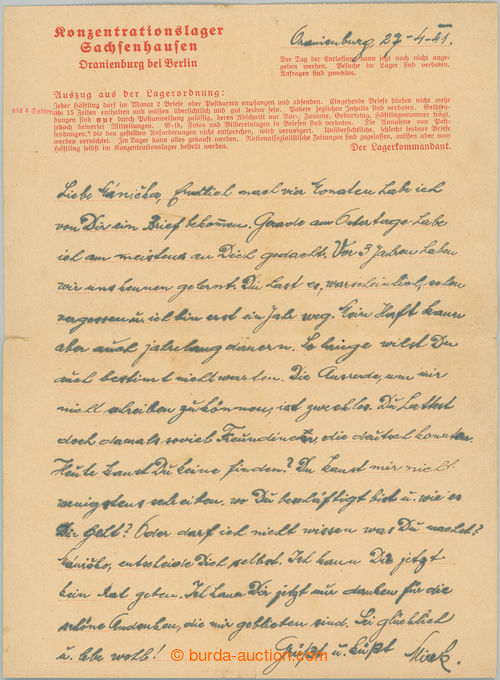 Konzentrationslager
Sachsenhausen
Oranienburg bei Berlin
Oranienburg, 27-4-41.
Der Tag der Entlassung kann jetzt noch nicht ange-
geben werden. Besuche im Lager sind verboten.
Anfragen sind zwecklos.
Auszug aus der Lagerordnung:
Jeder Häftling darf im Monat 2 Briefe oder Postkarten empfangen und absenden. Eingehende Briefe dürfen nicht mehr
als 4 Seiten à 15 Zeilen enthalten und müssen übersichtlich und gut lesbar sein. Pakete jeglichen Inhalts sind verboten. Geldsen-
dungen sind nur durch Postanweisung zulässig, deren Abschnitt nur Vor-, Zuname, Geburtstag, Häftlingsnummer trägt,
jedoch keinerlei Mitteilungen. Geld, Fotos und Bildereinlagen in Briefen sind verboten. Die Annahme von Post-
sendungen, die den gestellten Anforderungen nicht entsprechen, wird verweigert. Unübersichtliche, schlecht lesbare Briefe
werden vernichtet. Im Lager kann alles gekauft werden. Nationalsozialistische Zeitungen sind zugelassen, müssen aber vom
Häftling selbst im Konzentrationslager bestellt werden.
Der Lagerkommandant.
Liebe Mánička, Endlich nach vier Monaten habe ich
von Dir ein Brief bekommen. Gerade am Ostertage habe
ich am meisten an Dich gedacht. Vor 3 Jahren haben
wir uns kennen gelernt. Du hast es, warscheinlich, schon
vergessen u. ich bin erst ein Jahr weg. Mein Haft kann
aber auch jahrelang dauern. So lange wilst Du
auch bestimt nicht warten. Die Ausrede, um mir
nicht schreiben zu können, ist zwecklos. Du hattest
doch damals soviel Freundinen, die deutsch konnten.
Heute kanst Du keine finden? Du kanst mir nicht
wenigstens schreiben, wo Du beschäftigt bist u. wie es
Dir geht? Oder darf ich nicht wissen was Du machst?
Mánička, entscheide Dich selbst. Ich kann Dir jetzt
kein Rat geben. Ich kann Dir jetzt nur danken für die
schöne Andenken, die mir geblieben sind. Sei glücklich
u. lebe wohl! Grüßt u. küßt Mirek.
© burda-auction.com